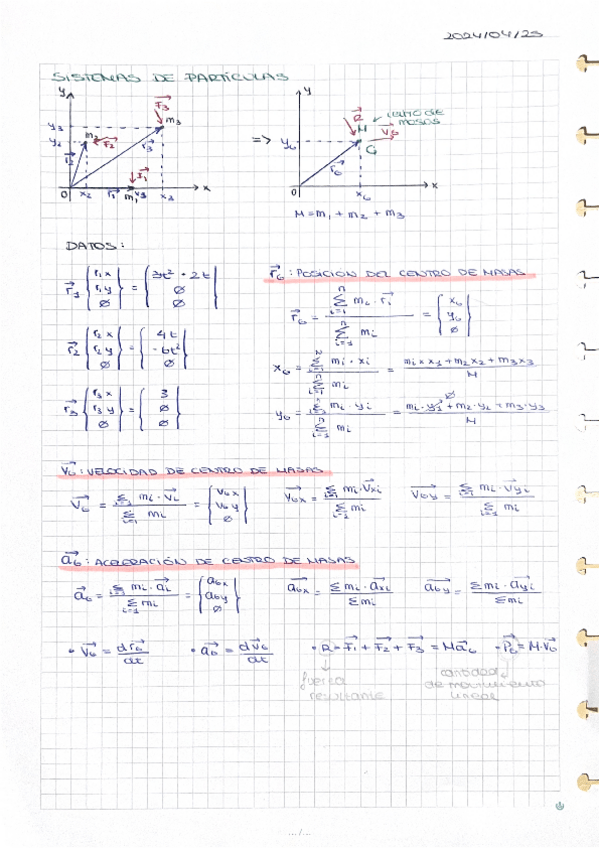 2024/04/25
SISTEMAS DE PARTÍCULAS
y y
F₃ m₃ R M centro de masas
y₃ V_G
y₂ m₂ F₂ r₃ => y_G G
r₂ F₁ r_G
O x₂ r₁ m₁ x₃ x O x_G x
M = m₁ + m₂ + m₃
DATOS:
r₁ {r₁x r₁y ∅} = {3t² + 2t ∅ ∅}
r₂ {r₂x r₂y ∅} = {4t -6t² ∅}
r₃ {r₃x r₃y ∅} = {3 ∅ ∅}
r_G: POSICIÓN DEL CENTRO DE MASAS
r_G = Σ mᵢ · rᵢ / Σ mᵢ = {x_G y_G ∅}
x_G = Σ mᵢ · xᵢ / Σ mᵢ = m₁ x x₁ + m₂ x₂ + m₃ x₃ / M
y_G = Σ mᵢ · yᵢ / Σ mᵢ = m₁ · y₁ ∅ + m₂ · y₂ + m₃ · y₃ / M
V_G: VELOCIDAD DE CENTRO DE MASAS
V_G = Σ mᵢ · Vᵢ / Σ mᵢ = {V_Gx V_Gy ∅} V_Gx = Σ mᵢ · Vxᵢ / Σ mᵢ V_Gy = Σ mᵢ · Vyᵢ / Σ mᵢ
a_G: ACELERACIÓN DE CENTRO DE MASAS
a_G = Σ mᵢ · aᵢ / Σ mᵢ = {a_Gx a_Gy ∅} a_Gx = Σ mᵢ · axᵢ / Σ mᵢ a_Gy = Σ mᵢ · ayᵢ / Σ mᵢ
• V_G = dr_G / dt • a_G = dV_G / dt • R = F₁ + F₂ + F₃ = M a_G • P_G = M · V_G
fuerza resultante
cantidad de movimiento lineal
.../...